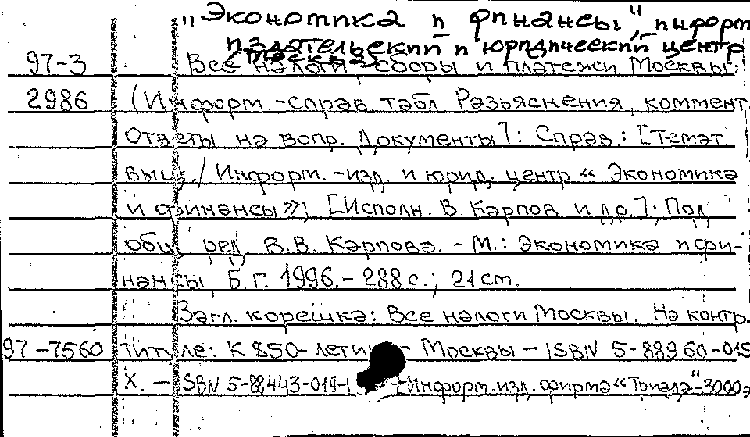 "Экономика и финансы", информ
издательский и юридический центр
(Москва)
97-3 Все налоги, сборы и платежи Москвы:
2986 (Информ.-справ табл Разъяснения, коммент
Ответы на вопр. Документы]: Справ.: [Темат
вып]/ Информ.-изд. и юрид. центр "Экономика
и финансы"; [Исполн. В. Карпов и др.]; Под
общ ред В.В. Карпова. - М.: Экономика и фи-
нансы Б.г. 1996.- 288 с.; 21 см.
Загл. корешка: Все налоги Москвы. На контр.
97-7560 титуле: К 850-лети - Москвы - ISBN 5-88960-015
X. - ISBN 5-88443-014- Информ.изд. фирма "Триада"-3000э